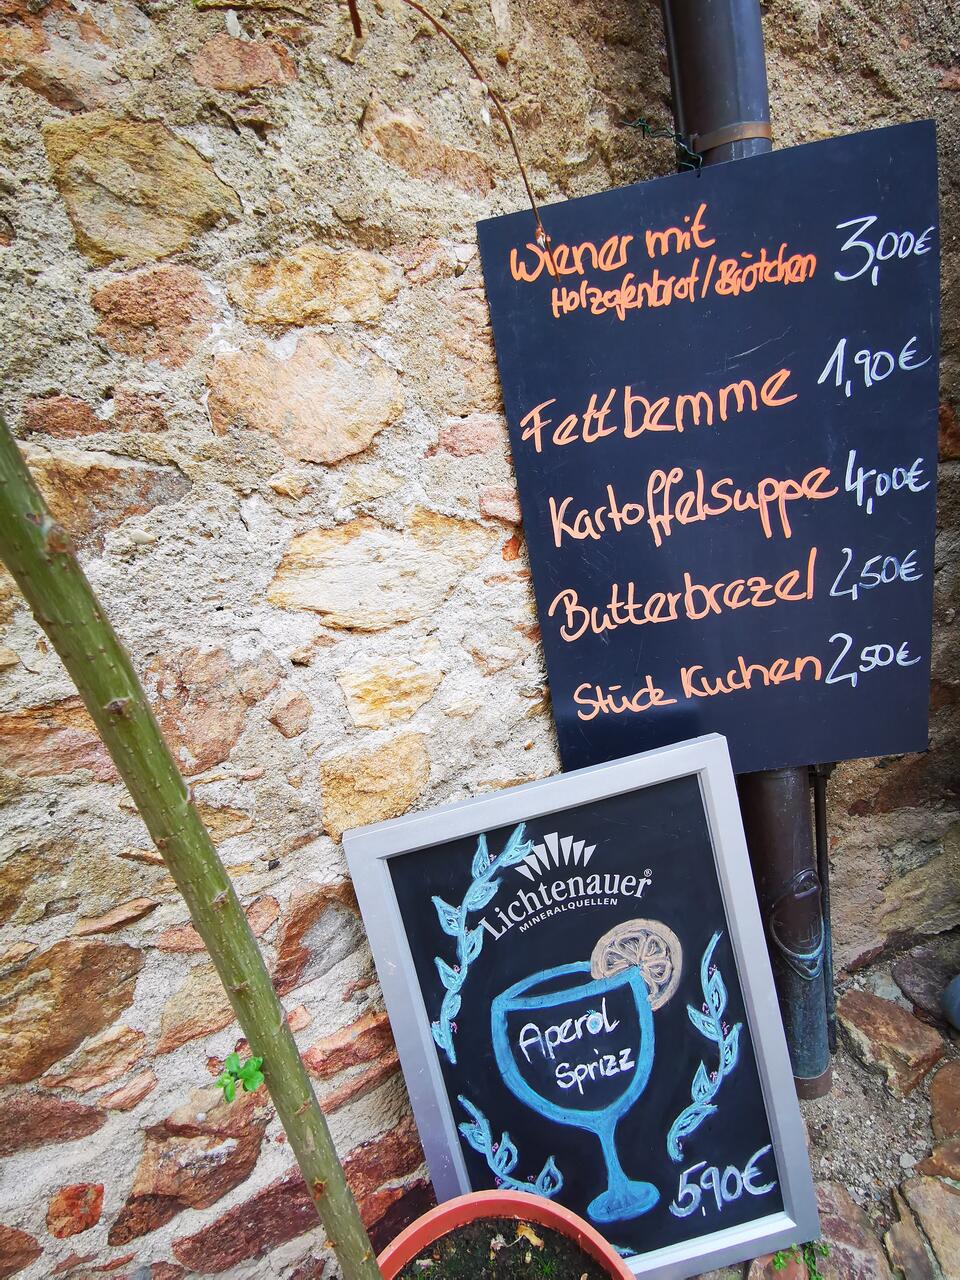 Wiener mit
Holzofenbrot/Brötchen 3,00€
Fettbemme 1,90€
Kartoffelsuppe 4,00€
Butterbrezel 2,50€
Stück Kuchen 2,50€
Lichtenauer®
MINERALQUELLEN
Aperol
Sprizz
5,90€